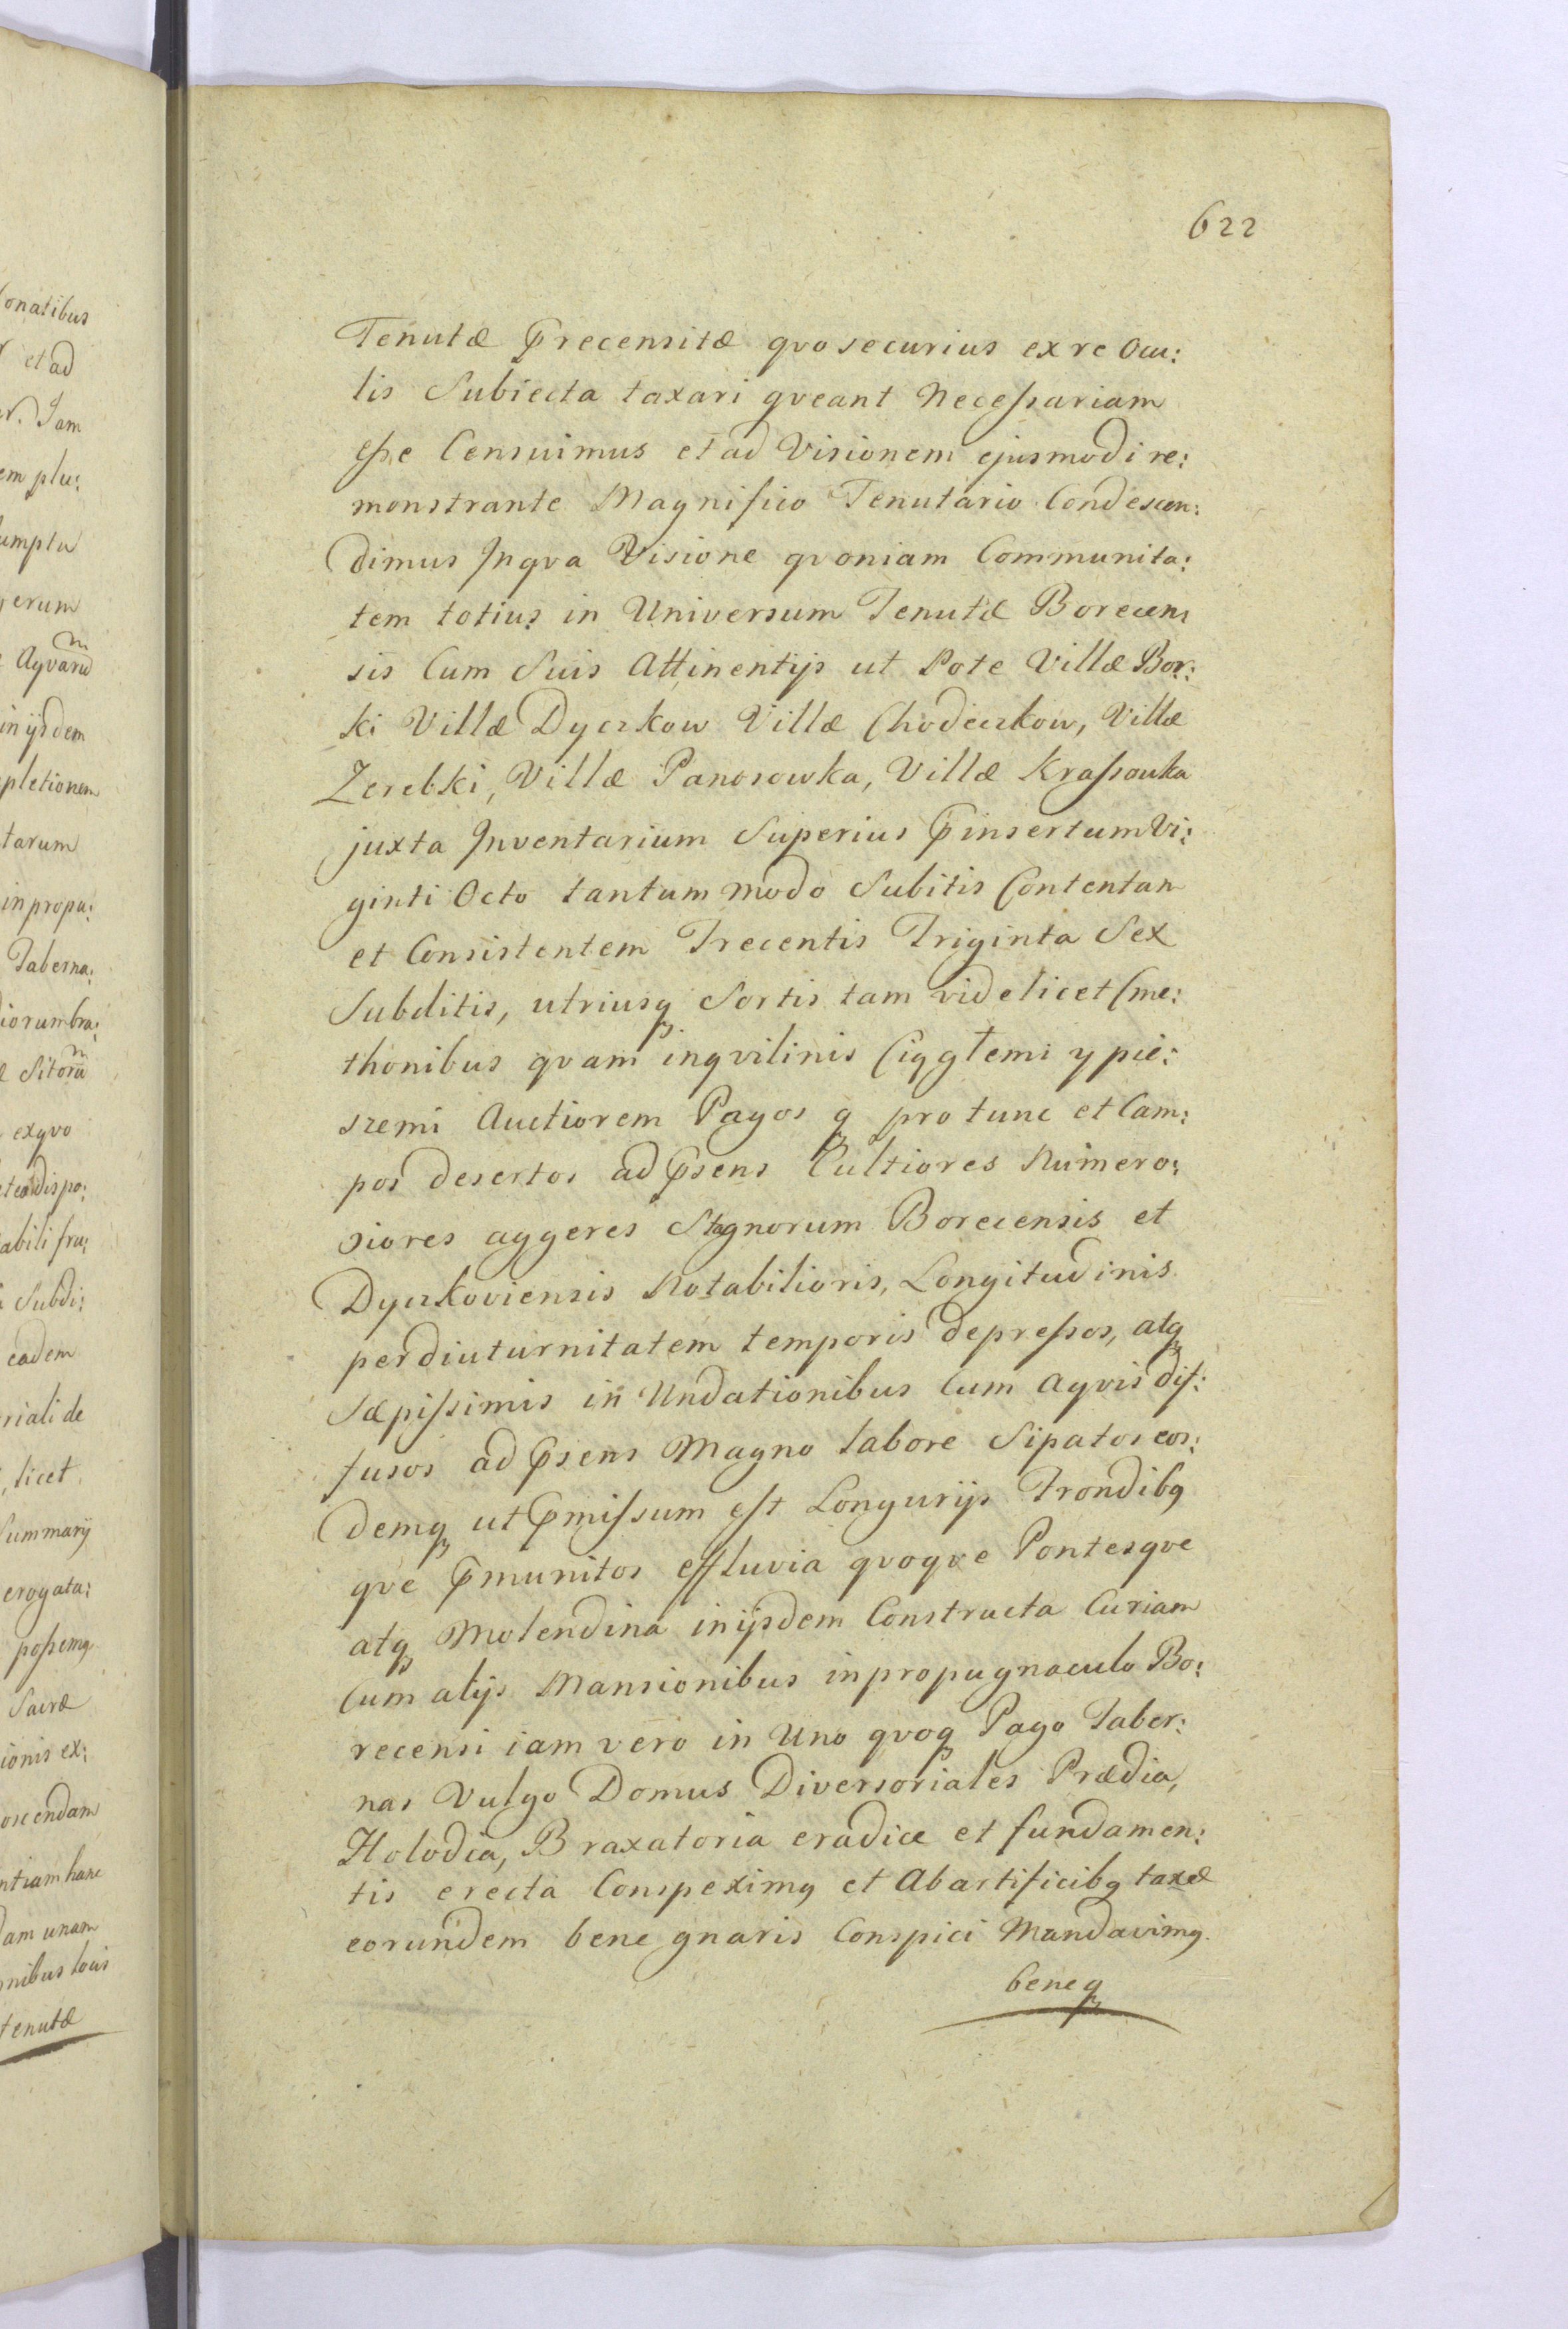 622
onatibus
et ad
Jam
em plu:
umptu
erum
Aqvaru m
in ijsdem
pletionem
tarum
in propu:
Taberna:
iorum bra:
Sitoru m
exqvo
dispo:
abili fru:
Subdi:
eadem
riali de
licet
Summarij
erogata:
possemq
Sacræ
ionis ex:
oscendam
ntiam hanc
dam unam
nibus locis
tenutæ
Tenutæ Precensitæ qvo securius ex re Ocu:
lis Subiecta taxari qveant Necessariam
esse Censuimus et ad Visionem ejusmodi re:
monstrante Magnifico Tenutario Condescen:
dimus Inqva Visione qvoniam Communita:
tem totius in Universum Tenutæ Borecen
sis Cum Suis Attinentijs ut Pote Villæ Bor:
ki Villæ Dyczkow Villæ Chodeczkow, Villæ
Zerebki, Villæ Panosowka, Villæ Krassowka
juxta Inventarium Superius Pinsertum Vi:
ginti Octo tantum modo Subitis Contentam
et Consistentem Trecentis Triginta Sex
Subditis, utriusq Sortis tam videlicet Cme:
thonibus qvam inqvilinis Ciągłemi y pie:
szemi Auctiorem Pagos q pro tunc et Cam:
pos desertos ad Psens Cultiores Numero:
siores aggeres Stagnorum Borecensis et
Dyczkoviensis Notabilioris, Longitudinis
per diuturnitatem temporis depressos, atq
Sæpissimis in Undationibus Cum Aqvis dif:
fusos ad Psens Magno labore Sipatos eos:
demq ut Pmissum est Longurijs Frondibq
qve Pmunitos effluvia qvoqve Pontesqve
atq Molendina in ijsdem Constructa Curiam
Cum alijs Mansionibus in propugnaculo Bo:
recensi iam vero in Uno qvoq Pago Taber:
nas Vulgo Domus Diversoriales Prædia,
Holodia, Braxatoria eradice et fundamen:
tis erecta Conspeximq et Ab artificibq taxæ
eorundem bene gnaris Conspici Mandavimq
beneq